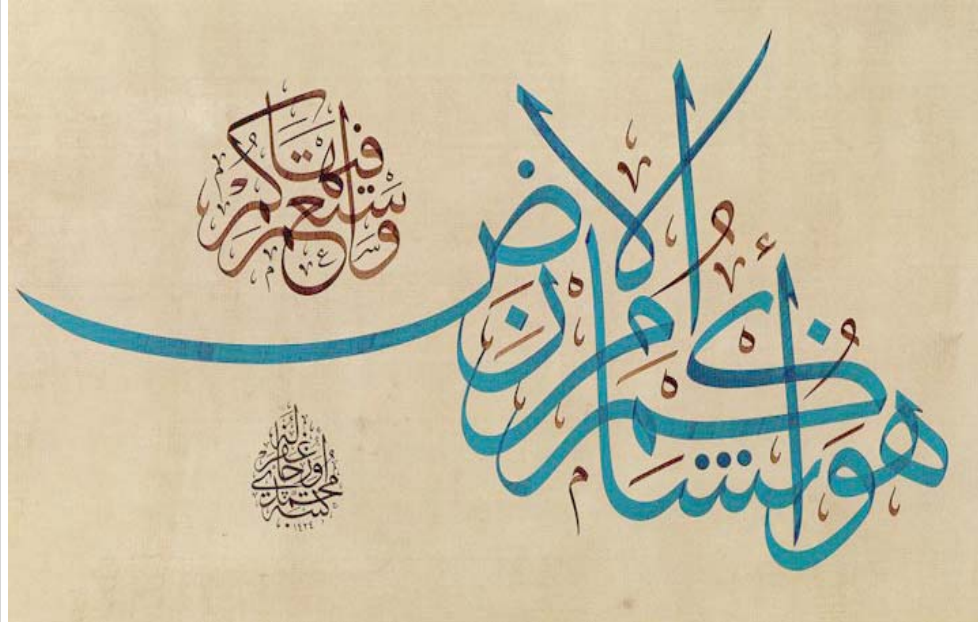 هُوَ أَنشَأَكُم مِّنَ الْأَرْضِ
وَاسْتَعْمَرَكُمْ فِيهَا
كتبه محمد اوزچاي غفر له
١٤٢٤